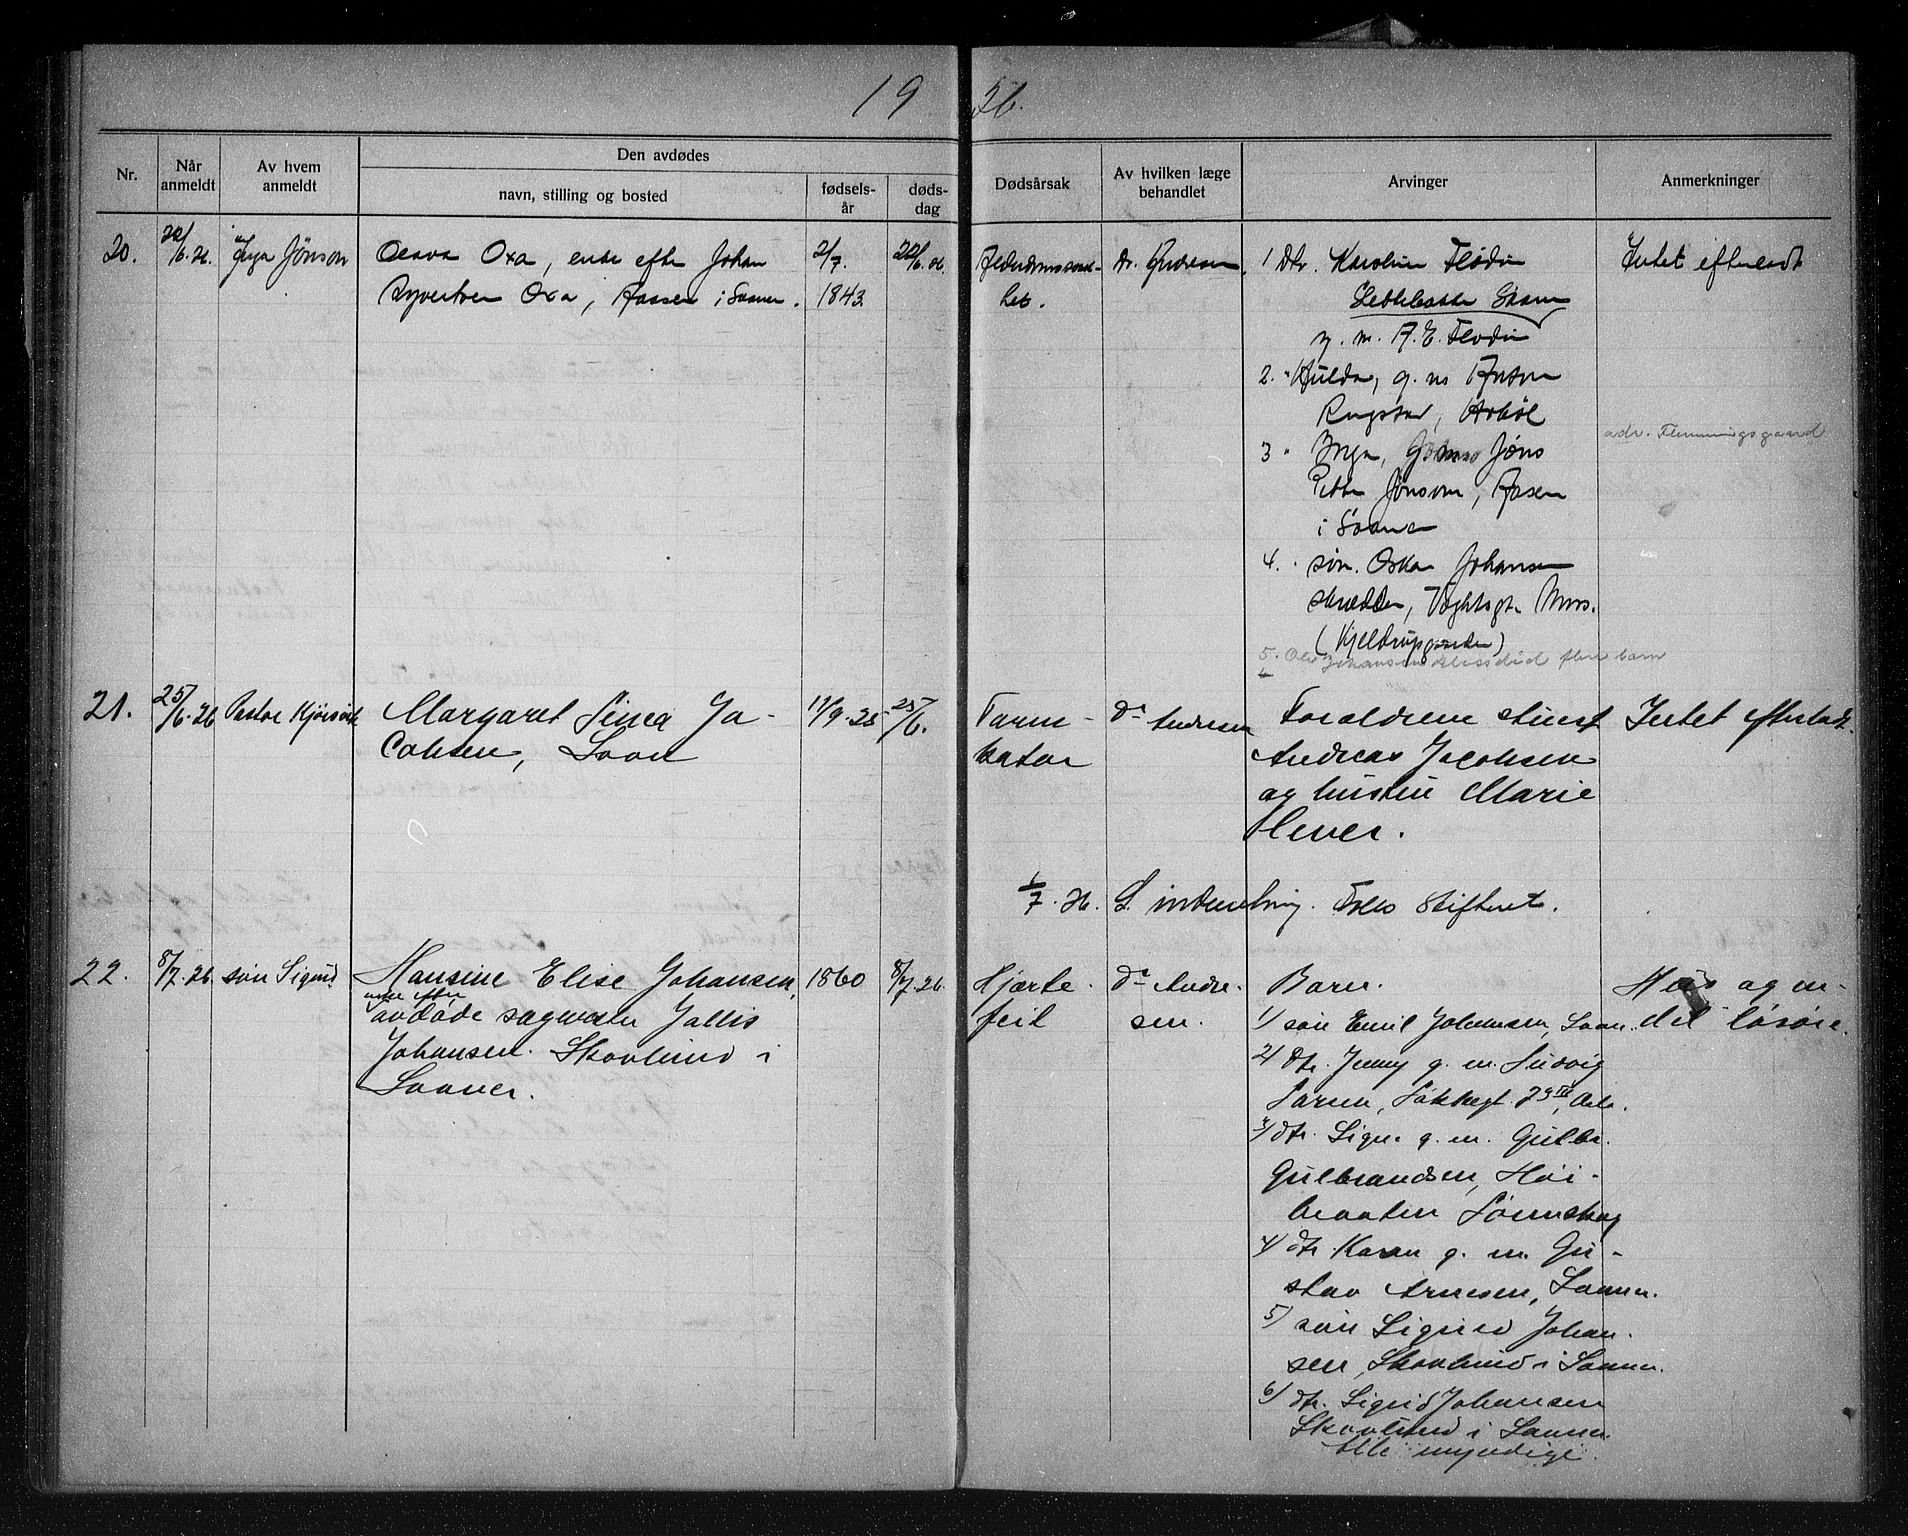 19 26.
Nr.
Når anmeldt
Av hvem anmeldt
Den avdødes
navn, stilling og bosted
fødsels-år
døds-dag
Dødsårsak
Av hvilken læge behandlet
Arvinger
Anmerkninger
20.
22/6.26.
Inga Jönson
Olava Oxa, enke efter Johan
Syvertsen Oxa, Aasen i Saaner.
2/7.
1843
22/6.26
Alderdomssvak-
het.
Dr. Andresen.
1 Dtr. Karoline Flodin
g. m. A. E. Flodin
2. " Hulda, g. m. Anton
Rugstad, Hobøl
3 " Inga, Jøns
Petter Jönson, Aasen
i Saaner
4. søn. Oskar Johansen
skrædder, Vogtsgt. Moss.
(Kjeldrupgaarden)
5. Johansen flere barn
Intet efterladt
adr. Flemmingsgaard
21.
25/6.26
Pastor Kjørsvik
Margaret Signea Ja-
cobsen, Soon
17/9.25
25/6.
Tarm-
katar
Dr. Andresen
Forældrene
Andreas Jacobsen
og hustru Marie
Intet efterladt.
1/7.26. S. indenlring. Folio Skiftret.
22.
8/7.26
søn Sigurd
Hansine Elise Johansen,
enke efter
avdøde sagmester Jallis
Johansen. Skovlund i
Saaner.
1860
8/7.26.
Hjerte-
feil
Dr. Andre-
sen.
Barn.
1) søn Emil Johansen, Saaner.
2) dtr. Jenny g. m. Ludvig
Larsen, 29 IV, Oslo.
3) dtr. Signe g. m. Gulbr.
Gulbrandsen, Høi-
braaten Lørenskog
4) dtr. Karen g. m. Gu-
stav Arnesen, Saaner.
5) søn Sigurd Johan-
sen, Skovlund i Saaner.
6) dtr. Sigrid Johansen
Skovlund i Saaner.
Alle myndige.
Hus og en-
del løsøre.